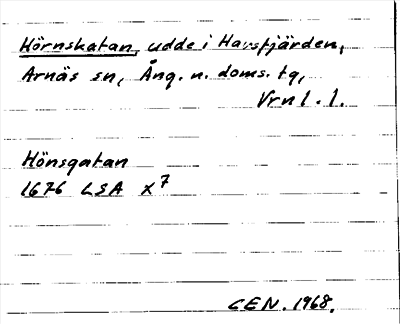 Hörnskatan, udde i Havsfjärden,
Arnäs sn, Ång. n. doms. tg,
Vrnl. l.
Hönsgatan
1676 LSA X7
CEN. 1968.